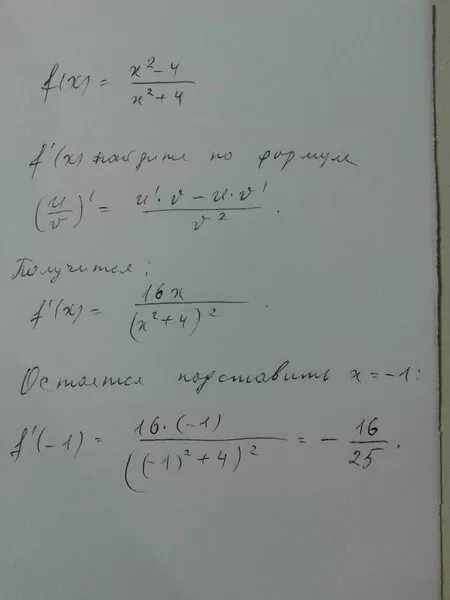 f(x) = (x² - 4)/(x² + 4)
f'(x) найдите по формуле
(u/v)' = (u'·v - u·v')/v².
Получится:
f'(x) = 16x/(x² + 4)².
Остается подставить x = -1:
f'(-1) = 16·(-1)/((-1)² + 4)² = - 16/25.